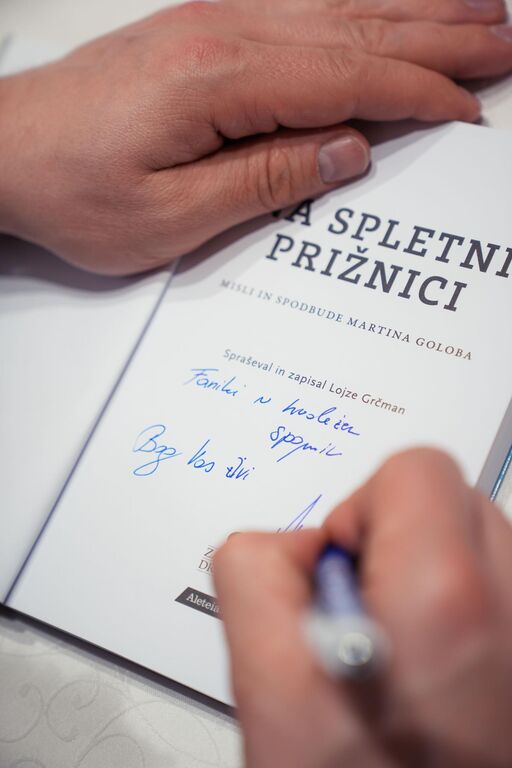 A SPLETNI
PRIŽNICI
MISLI IN SPODBUDE MARTINA GOLOBA
Spraševal in zapisal Lojze Grčman
Faniki v hvaležen
spomin
Bog Vas živi
Aleteia